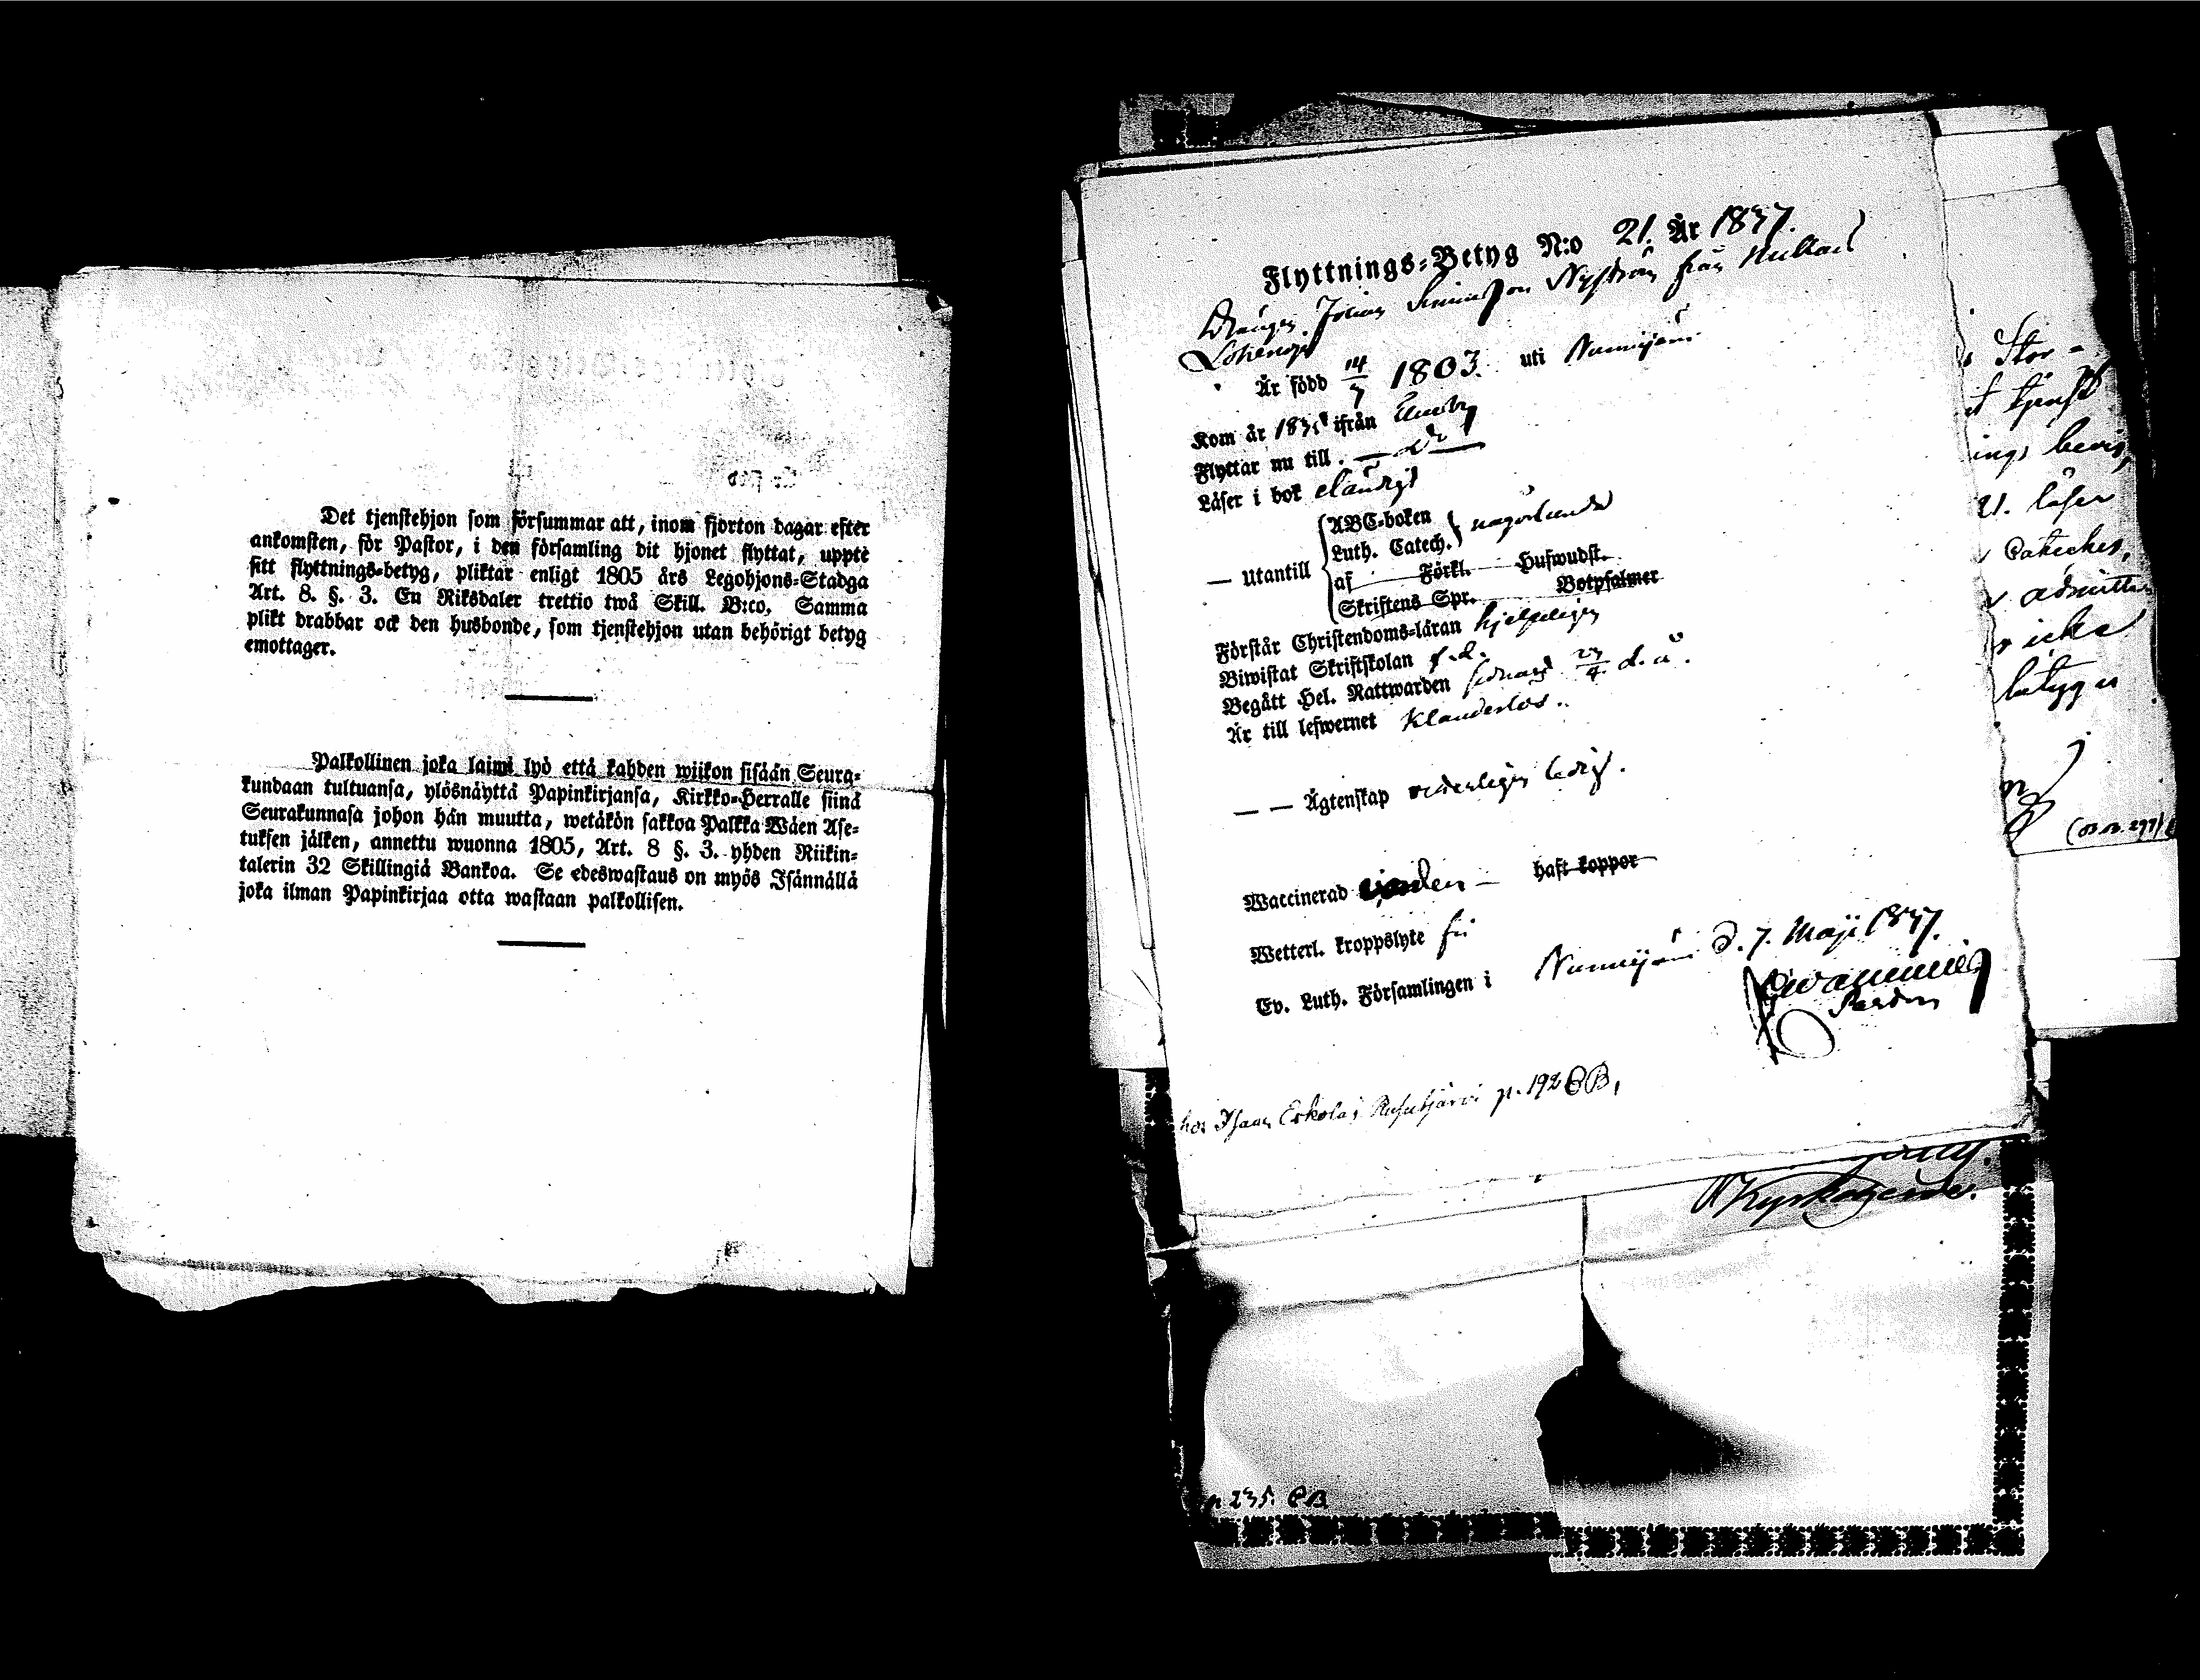 Det tjenstehjon som försummar att, inom fjorton dagar efter
ankomsten, för Pastor, i den församling dit hjonet flyttat, uppte
sitt flyttnings-betyg, pliktar enligt 1805 års Legohjons-Stadga
Art. 8. §. 3. En Riksdaler trettio twå Skill. B:co. Samma
plikt drabbar ock den husbonde, som tjenstehjon utan behörigt betyg
emottager.
Palkollinen joka laimi lyö että kahden wiikon sisään Seura-
kundaan tultuansa, ylösnäyttä Papinkirjansa, Kirkko-Herralle siinä
Seurakunnasa johon hän muutta, wetäkön sakkoa Palkka Wäen Ase-
tuksen jälken, annettu wuonna 1805, Art. 8 §. 3. yhden Riikin-
talerin 32 Skillingiä Bankoa. Se edeswastaus on myös Isännällä
joka ilman Papinkirjaa otta wastaan palkollisen.
Flyttnings-Betyg N:o 21. År 1837.
Drängen Johan Nyström från
Är född 14/7 1803. uti Nurmijärvi
Kom år ifrån
Flyttar nu till. — d:o —
Läser i bok eländigt
— Utantill
ABC-boken
Luth. Catech. någorlunda
af Förkl. Hufwudst.
Skriftens Spr. Botpsalmer
Förstår Christendoms-läran hjelpeligen
Biwistat Skriftskolan f.d.
Begått Hel. Nattwarden sednast 23/4 d. å.
Är till lefwernet klanderlös.
— — Ägtenskap wederligen ledig.
Waccinerad worden — haft koppor
Wetterl. kroppslyte fri
Ev. Luth. Församlingen i Nurmijärvi d. 7. Maji 1837.
hos Isaac Eskola i Rusutjärvi p. 192 CB,
Stor-
tjenst
ings bevis,
21. läser
Cateches,
admitte
icke
betyga
p 235. CB